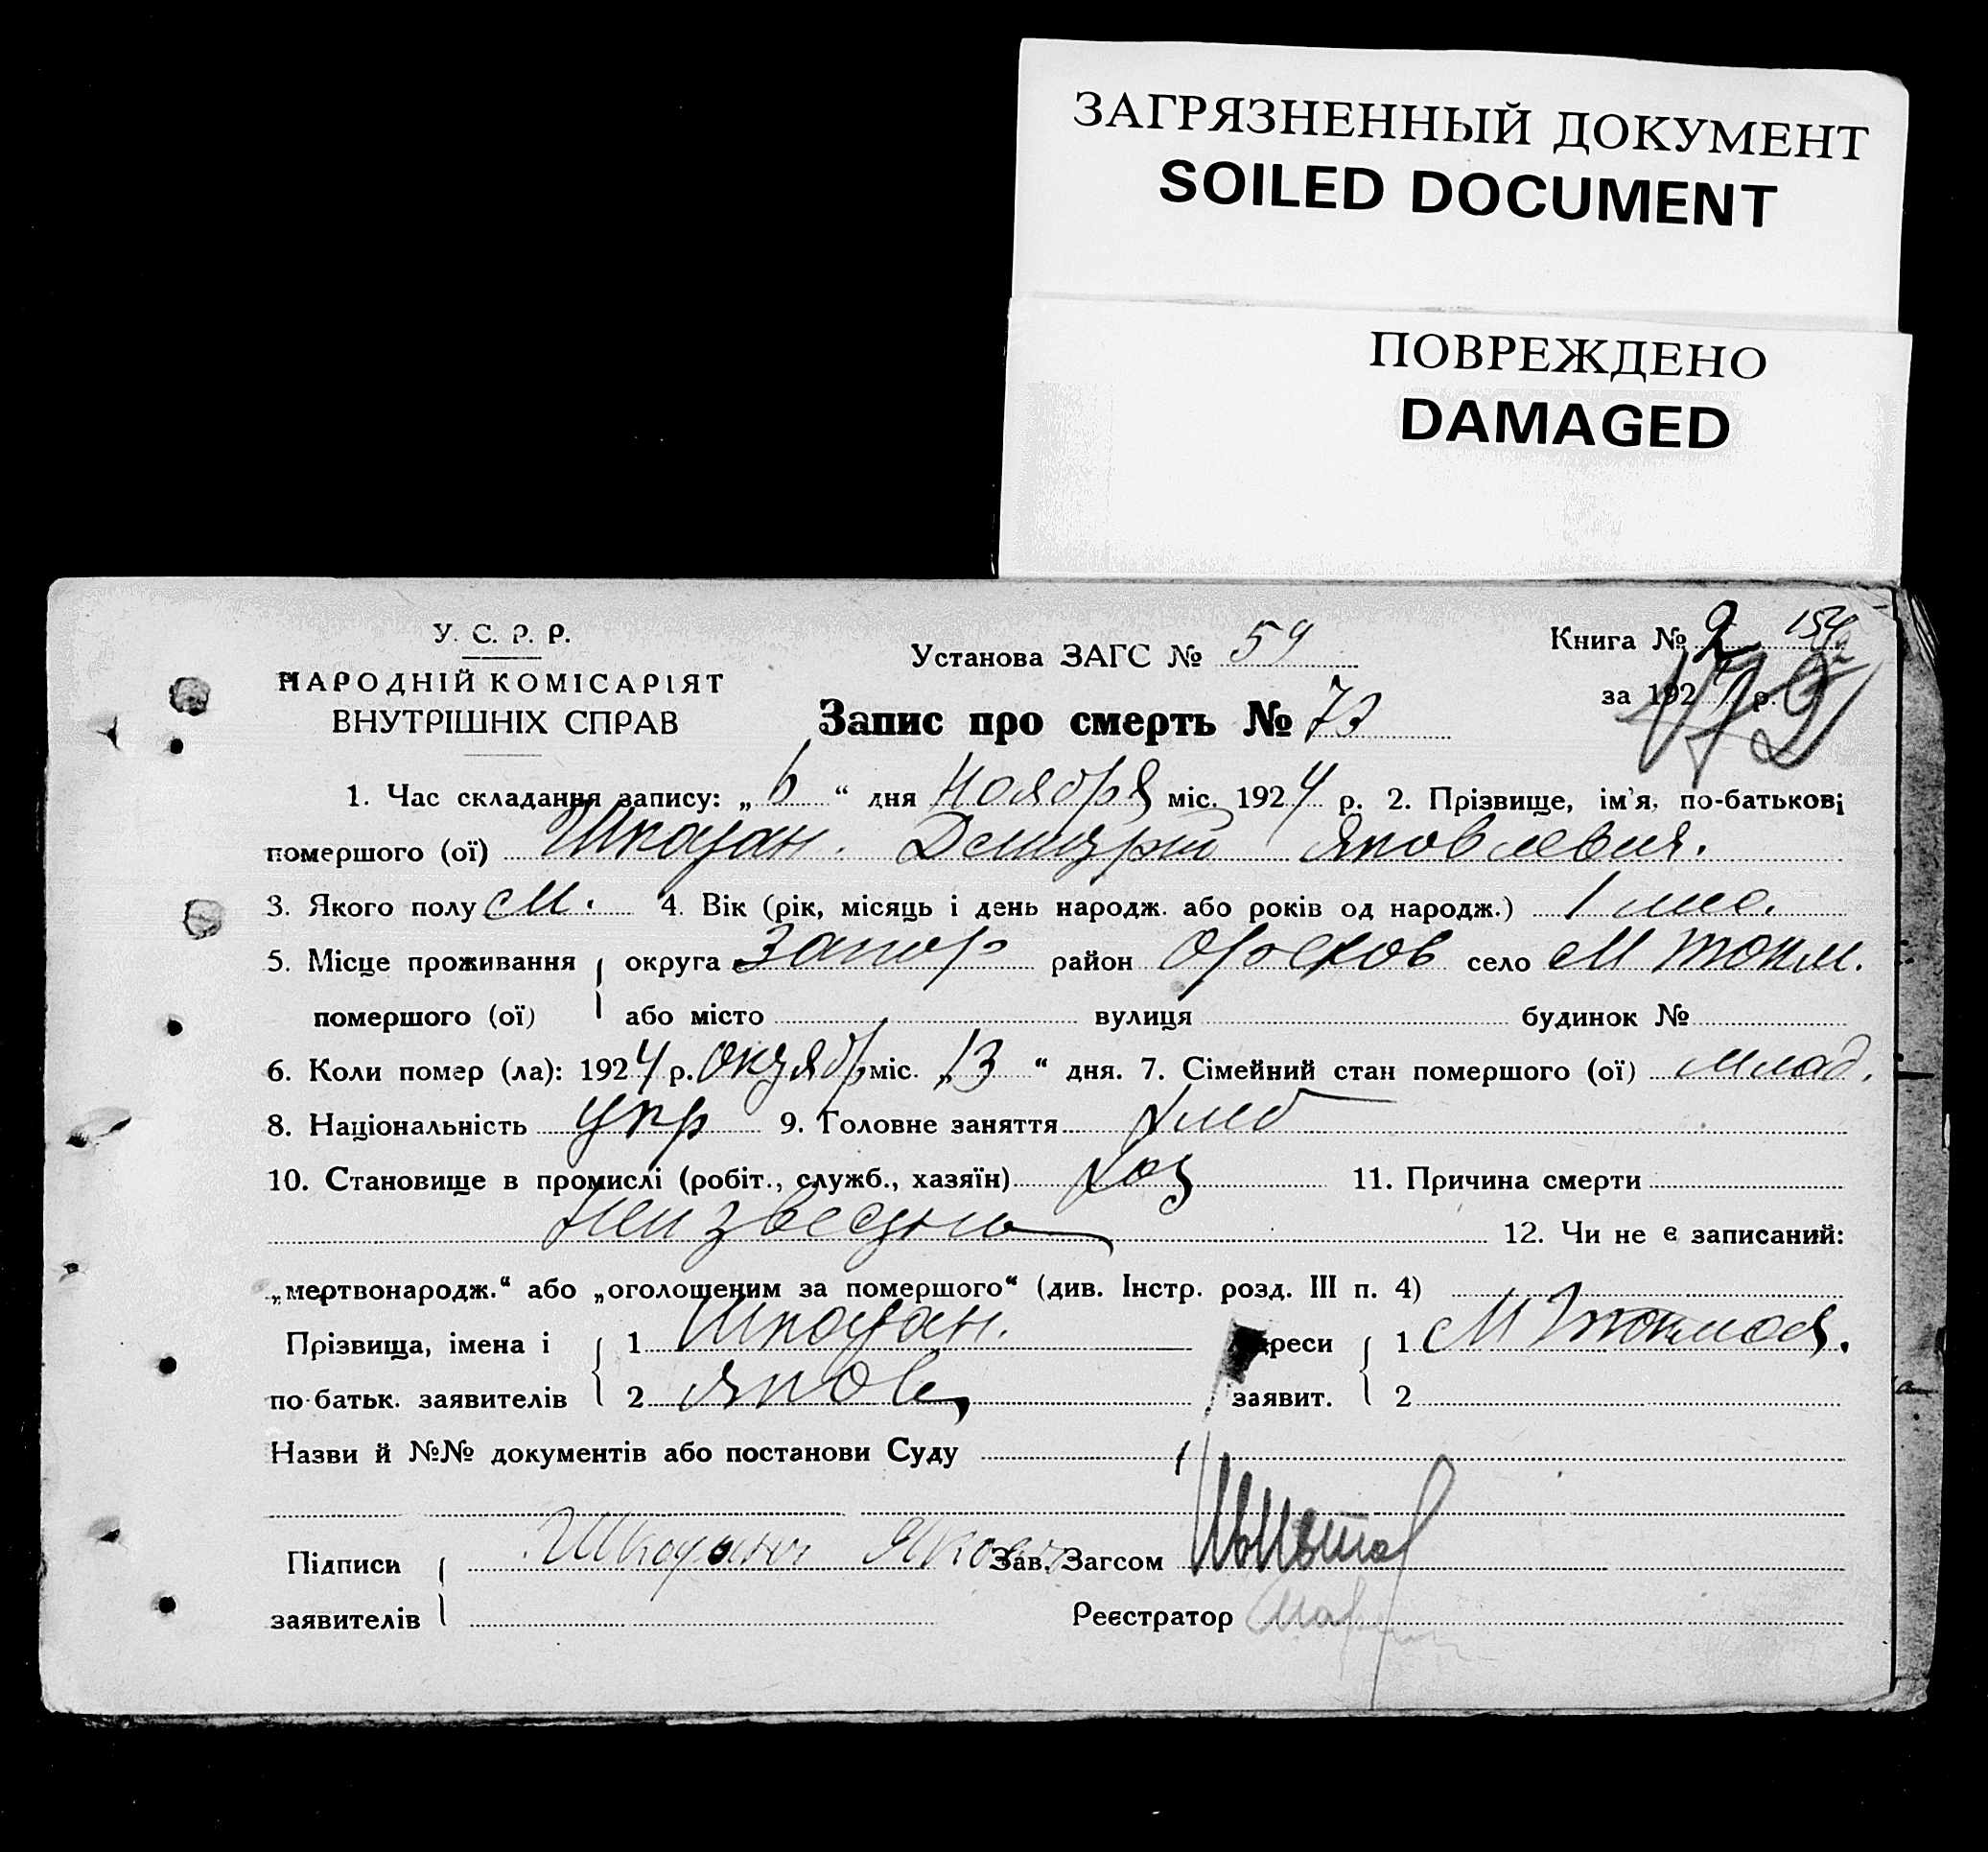 ЗАГРЯЗНЕННЫЙ ДОКУМЕНТ
SOILED DOCUMENT
ПОВРЕЖДЕНО
DAMAGED
У. С. Р. Р.
НАРОДНІЙ КОМІСАРІЯТ
ВНУТРІШНІХ СПРАВ
Установа ЗАГС № 59
Запис про смерть № 73
Книга № 2 154
за 192 р. 172
1. Час складання запису: „6“ дня Ноября міс. 1924 р. 2. Прізвище, ім'я, по-батькові
помершого (ої) Шкодан. Дмитрий Яковлевич.
3. Якого полу М. 4. Вік (рік, місяць і день народж. або років од народж.) 1 мес.
5. Місце проживання округа Запор район Орехов село М Токм.
помершого (ої) або місто вулиця будинок №
6. Коли помер (ла): 1924 р. октябр міс. „13“ дня. 7. Сімейний стан помершого (ої) млад.
8. Національність укр 9. Головне заняття хлеб
10. Становище в промислі (робіт., служб., хазяїн) хоз 11. Причина смерти
неизвестно 12. Чи не є записаний:
„мертвонародж.“ або „оголошеним за помершого“ (див. Інстр. розд. III п. 4)
Прізвища, імена і 1 Шкодан. адреси 1 М Токмак.
по-батьк. заявителів 2 Яков заявит. 2
Назви й №№ документів або постанови Суду
Підписи Зав. Загсом
заявителів Реєстратор